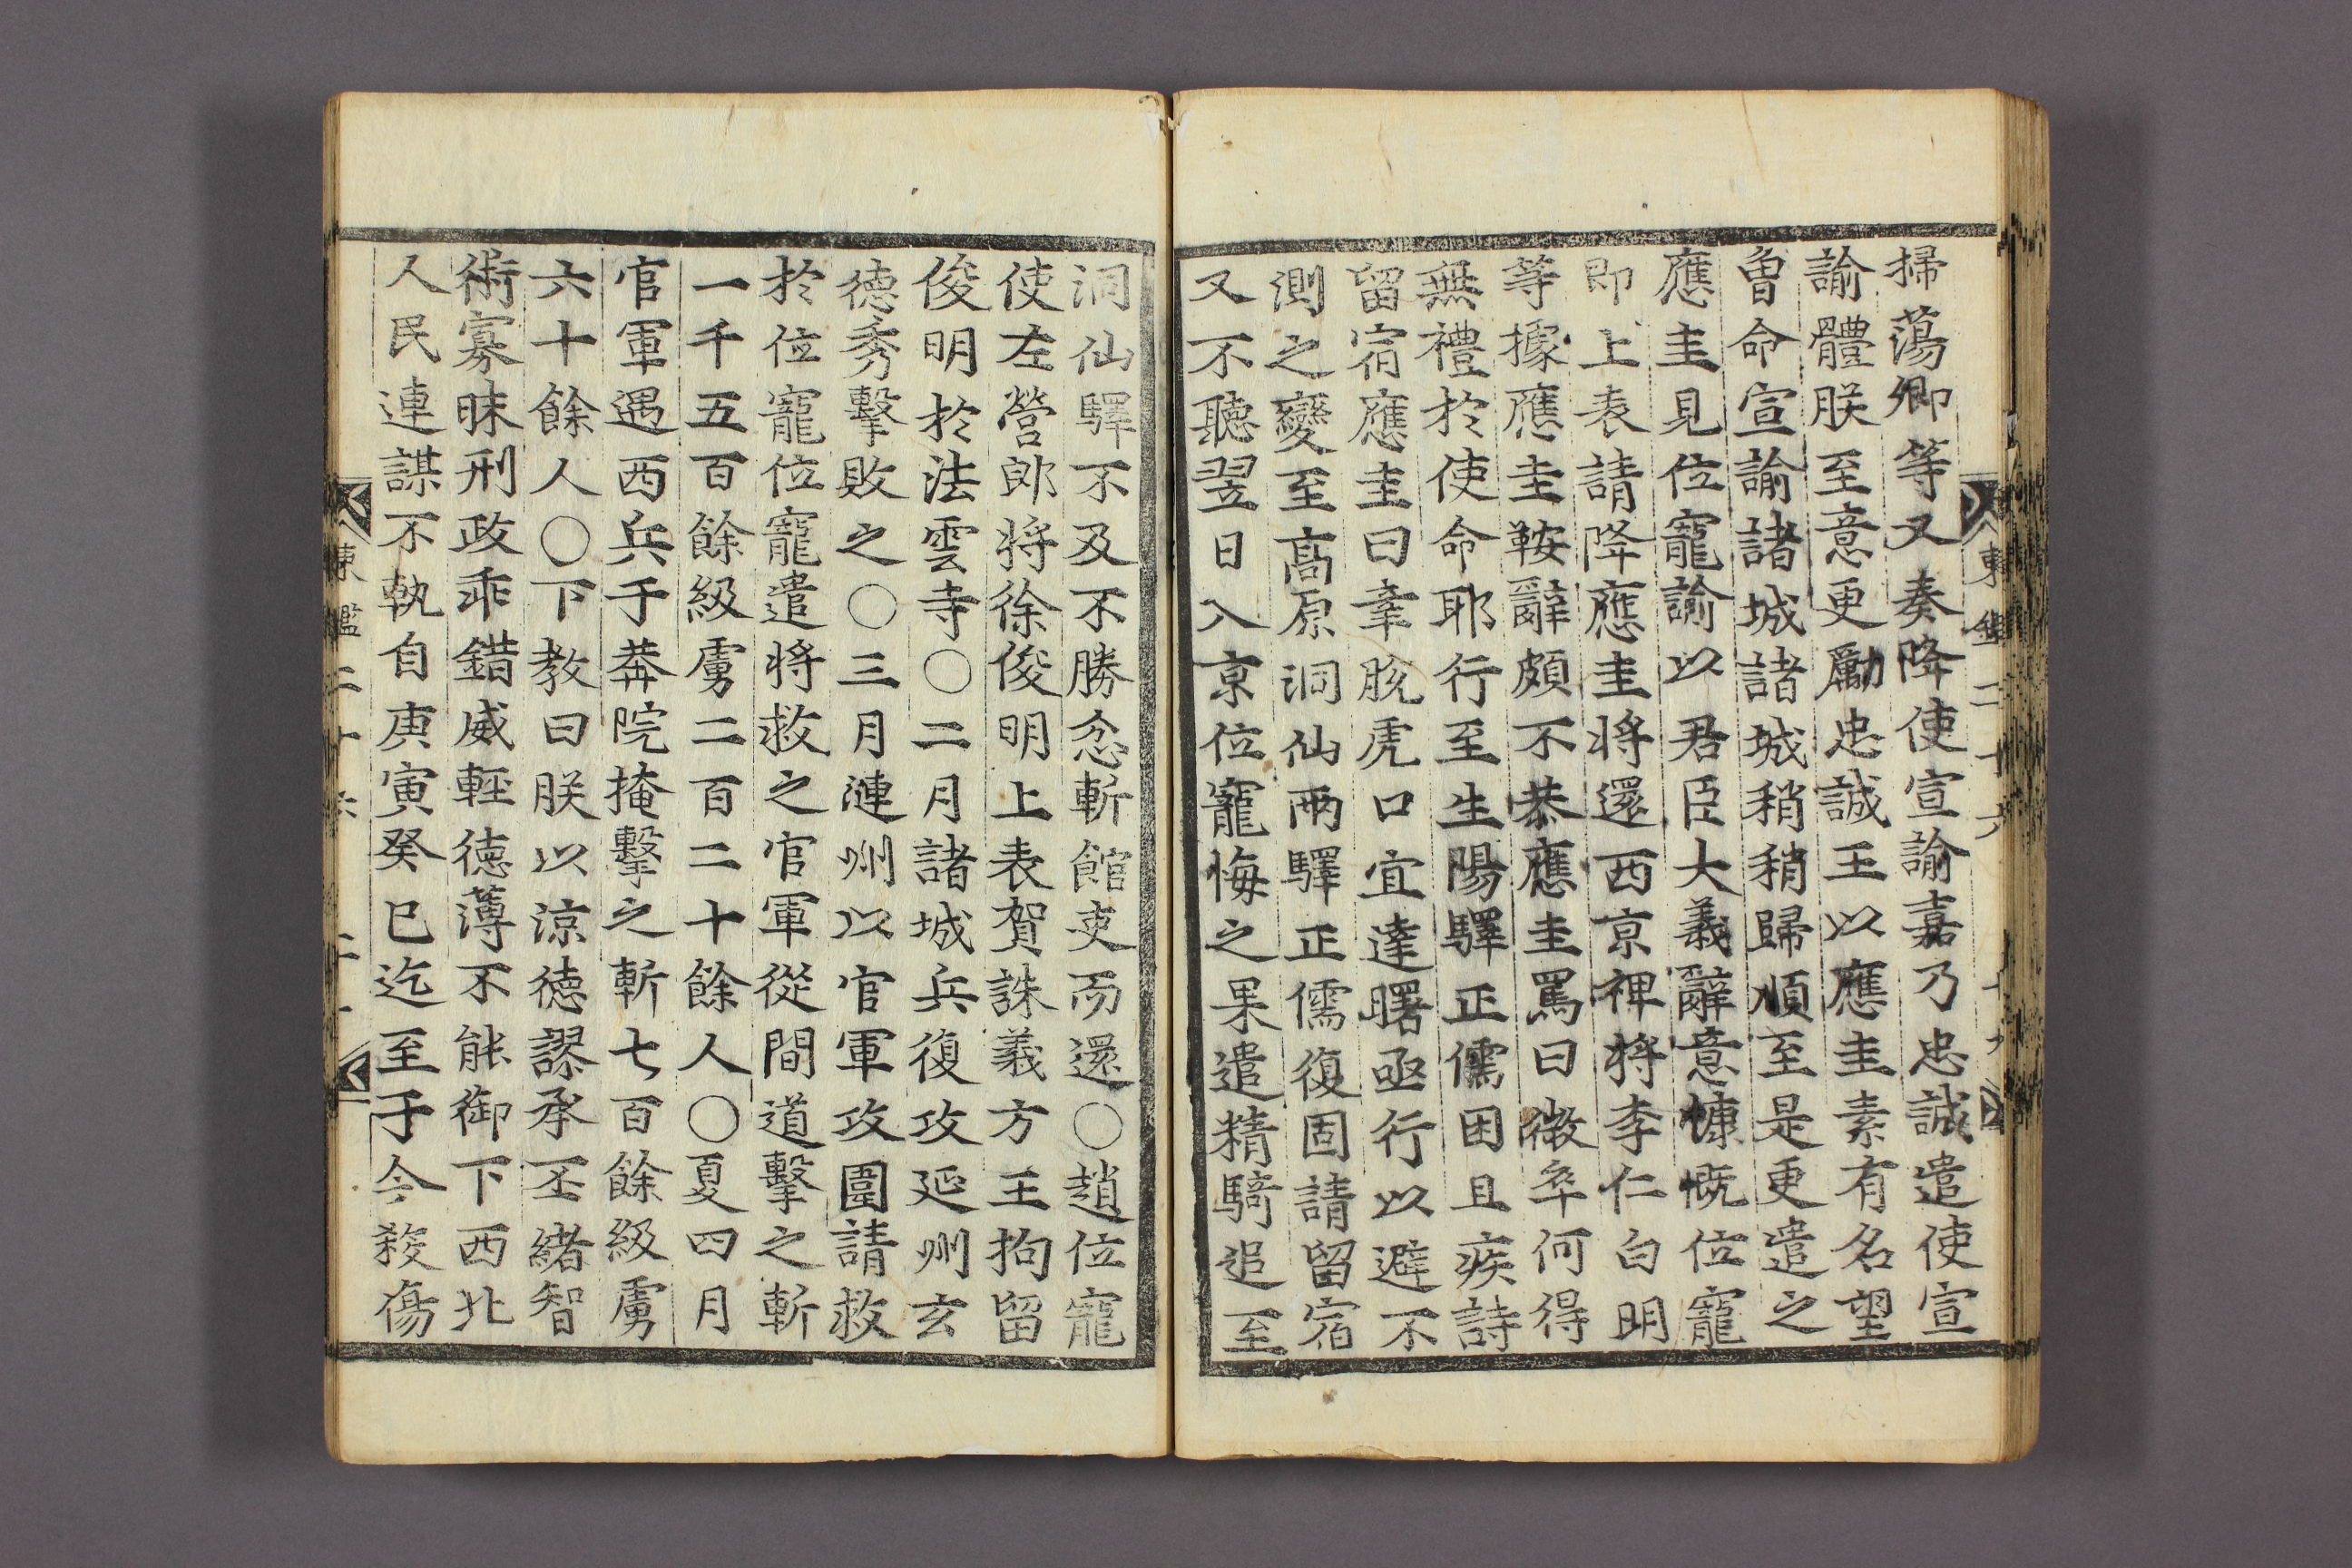 掃蕩卿等又奏降使宣諭嘉乃忠誠遣使宣
諭體朕至意更勵忠誠王以應圭素有名望
曾命宣諭諸城諸城稍稍歸順至是更遣之
應圭見位寵諭以君臣大義辭意慷慨位寵
即上表請降應圭將還西京裨將李仁白明
等據應圭鞍辭頗不恭應圭罵曰微卒何得
無禮於使命耶行至生陽驛正儒困且疾請
留宿應圭曰幸脫虎口宜達曙亟行以避不
測之變至高原洞仙兩驛正儒復固請留宿
又不聽翌日入京位寵悔之果遣精騎追至
洞仙驛不及不勝忿斬館吏而還○趙位寵
使左營郞將徐俊明上表賀誅義方王拘留
俊明於法雲寺○二月諸城兵復攻延州玄
德秀擊敗之○三月漣州以官軍攻圍請救
於位寵位寵遣將救之官軍從間道擊之斬
一千五百餘級虜二百二十餘人○夏四月
官軍遇西兵于莽院掩擊之斬七百餘級虜
六十餘人○下教曰朕以涼德謬承丕緖智
術寡昧刑政乖錯威輕德薄不能御下西北
人民連謀不執自庚寅癸巳迄至于今殺傷
東鑑二十六